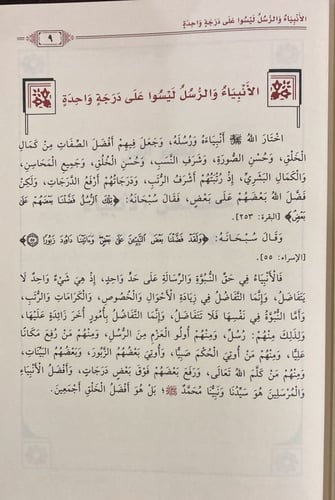 الأَنْبِيَاءُ وَالرُّسُلُ لَيْسُوا عَلَى دَرَجَةٍ وَاحِدَةٍ
٩
الأَنْبِيَاءُ وَالرُّسُلُ لَيْسُوا عَلَى دَرَجَةٍ وَاحِدَةٍ
اخْتَارَ اللهُ ﷻ أَنْبِيَاءَهُ وَرُسُلَهُ، وَجَعَلَ فِيهِمْ أَفْضَلَ الصِّفَاتِ مِنْ كَمَالِ
الْخَلْقِ، وَحُسْنِ الصُّورَةِ، وَشَرَفِ النَّسَبِ، وَحُسْنِ الْخُلُقِ، وَجَمِيعِ الْمَحَاسِنِ،
وَالْكَمَالِ الْبَشَرِيِّ، إِذْ رُتْبَتُهُمْ أَشْرَفُ الرُّتَبِ، وَدَرَجَاتُهُمْ أَرْفَعُ الدَّرَجَاتِ، وَلَكِنْ
فَضَّلَ اللهُ بَعْضَهُمْ عَلَى بَعْضٍ، فَقَالَ سُبْحَانَهُ: ﴿تِلْكَ ٱلرُّسُلُ فَضَّلْنَا بَعْضَهُمْ عَلَىٰ
بَعْضٍ﴾ [البقرة: ٢٥٣].
وَقَالَ سُبْحَانَهُ: ﴿وَلَقَدْ فَضَّلْنَا بَعْضَ ٱلنَّبِيِّـۧنَ عَلَىٰ بَعْضٍ وَءَاتَيْنَا دَاوُۥدَ زَبُورًا ۝﴾
[الإسراء: ٥٥].
فَالْأَنْبِيَاءُ فِي حَقِّ النُّبُوَّةِ وَالرِّسَالَةِ عَلَى حَدٍّ وَاحِدٍ، إِذْ هِيَ شَيْءٌ وَاحِدٌ لَا
يَتَفَاضَلُ، وَإِنَّمَا التَّفَاضُلُ فِي زِيَادَةِ الْأَحْوَالِ وَالْخُصُوصِ، وَالْكَرَامَاتِ وَالرُّتَبِ،
وَأَمَّا النُّبُوَّةُ فِي نَفْسِهَا فَلَا تَتَفَاضَلُ، وَإِنَّمَا التَّفَاضُلُ بِأُمُورٍ أُخَرَ زَائِدَةٍ عَلَيْهَا،
وَلِذَلِكَ مِنْهُمْ: رُسُلٌ، وَمِنْهُمْ أُولُو الْعَزْمِ مِنَ الرُّسُلِ، وَمِنْهُمْ مَنْ رُفِعَ مَكَانًا
عَلِيًّا، وَمِنْهُمْ مَنْ أُوتِيَ الْحُكْمَ صَبِيًّا، وَأُوتِيَ بَعْضُهُمُ الزَّبُورَ، وَبَعْضُهُمُ الْبَيِّنَاتِ،
وَمِنْهُمْ مَنْ كَلَّمَ اللهُ تَعَالَى، وَرَفَعَ بَعْضَهُمْ فَوْقَ بَعْضٍ دَرَجَاتٍ، وَأَفْضَلُ الْأَنْبِيَاءِ
وَالْمُرْسَلِينَ هُوَ سَيِّدُنَا وَنَبِيُّنَا مُحَمَّدٌ ﷺ؛ بَلْ هُوَ أَفْضَلُ الْخَلْقِ أَجْمَعِينَ.